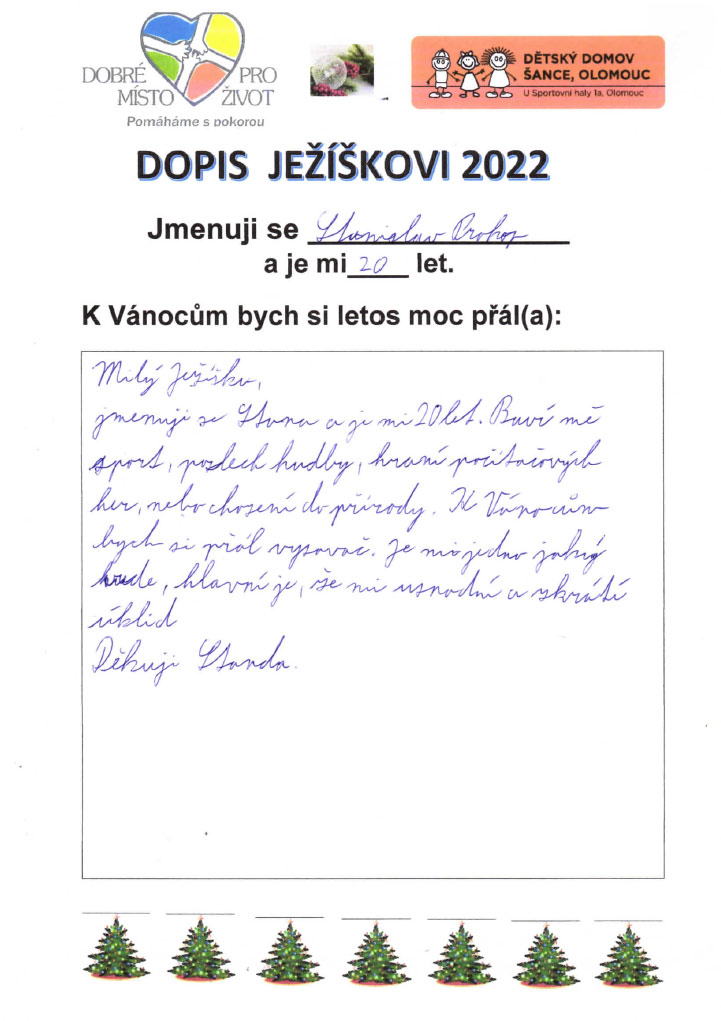 DOBRÉ PRO
MÍSTO ŽIVOT
Pomáháme s pokorou
DĚTSKÝ DOMOV
ŠANCE, OLOMOUC
U Sportovní haly 1a, Olomouc
DOPIS JEŽÍŠKOVI 2022
Jmenuji se Stanislav Prokop
a je mi 20 let.
K Vánocům bych si letos moc přál(a):
Milý Ježíšku,
jmenuji se Standa a je mi 20 let. Baví mě
sport, poslech hudby, hraní počítačových
her, nebo chození do přírody. K Vánocům
bych si přál vysavač. Je mi jedno jaký
bude, hlavní je, že mi usnadní a zkrátí
úklid
Děkuji Standa.